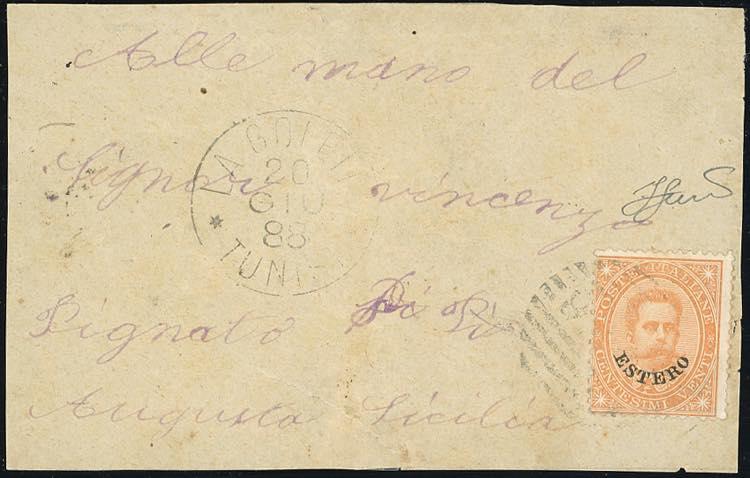 Alle mano del
Signori vincenzo
Pignato Di Si
Augusta Sicilia
LA GOLET
20
GIU
88
* TUNIS
POSTE ITALIANE
ESTERO
CENTESIMI VENTI